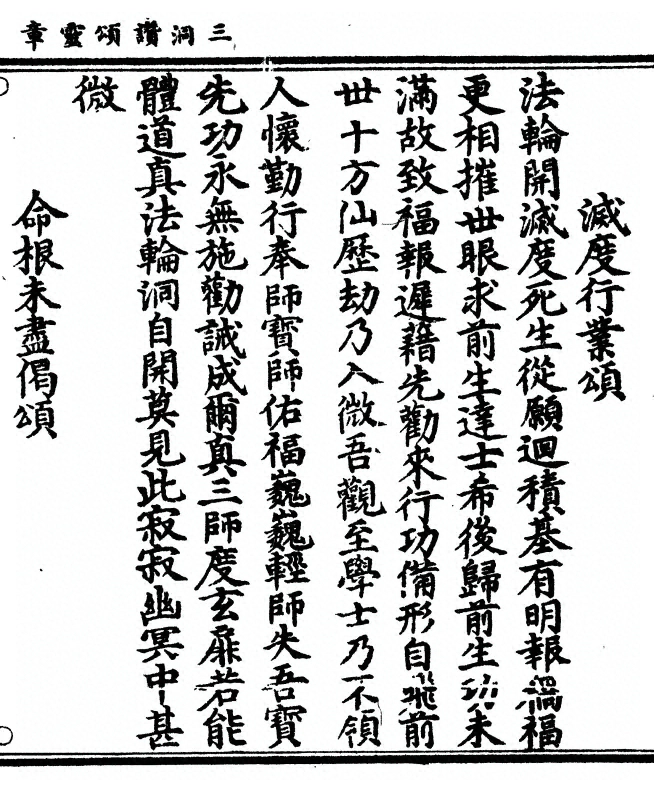 三洞讚頌靈章
滅度行業頌
法輪開滅度死生從願迴積基有明報禍福
更相摧世眼求前生達士希後歸前生功未
滿故致福報遲藉先勸來行功備形自飛前
世十方仙歷劫乃入微吾觀至學士乃不領
人懷勤行奉師寶師佑福巍巍輕師失吾寶
先功永無施勸誡成爾真三師度玄扉若能
體道真法輪洞自開莫見此寂寂幽冥中甚
微
命根未盡偈頌